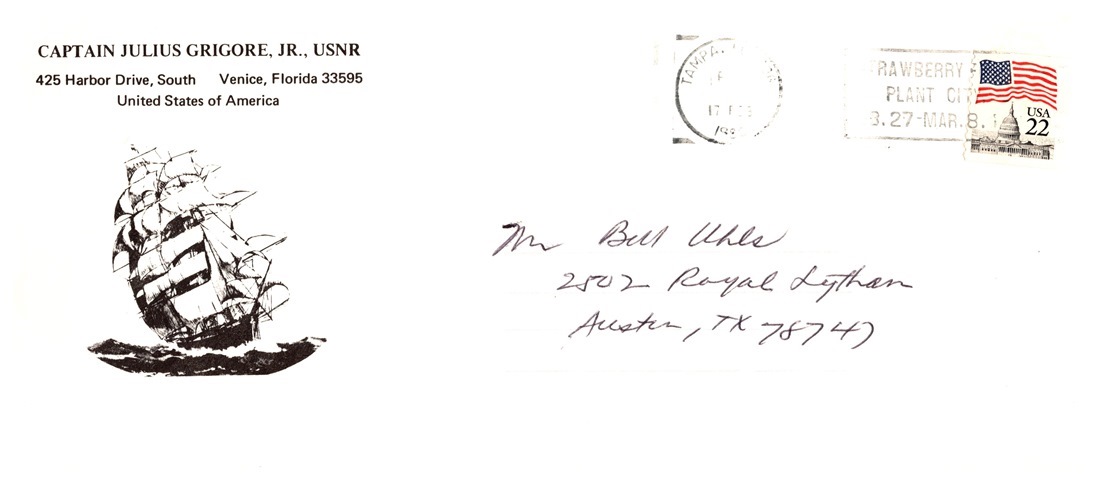 CAPTAIN JULIUS GRIGORE, JR., USNR
425 Harbor Drive, South Venice, Florida 33595
United States of America
TAMPA,
17 FEB
RAWBERRY
PLANT CITY
27-MAR.8,
USA
22
Mr Bill Uhls
2502 Royal Lytham
Austin, TX 78747